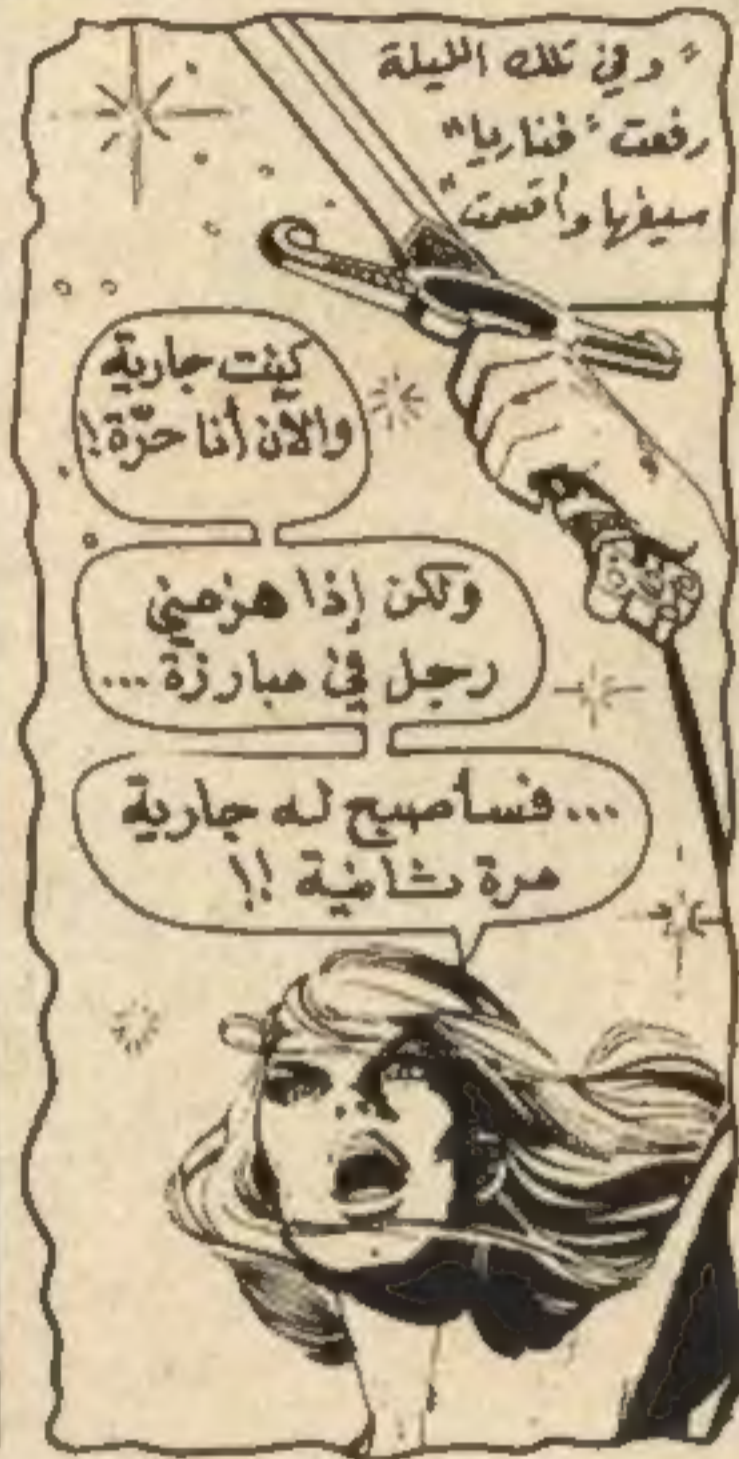 "وفي تلك الليلة
رفعت "فناريا"
سيفها وأقسمت"
كنت جارية
والآن أنا حرّة!
ولكن إذا هزمني
رجل في مبارزة...
...فسأصبح له جارية
مرة ثانية!!